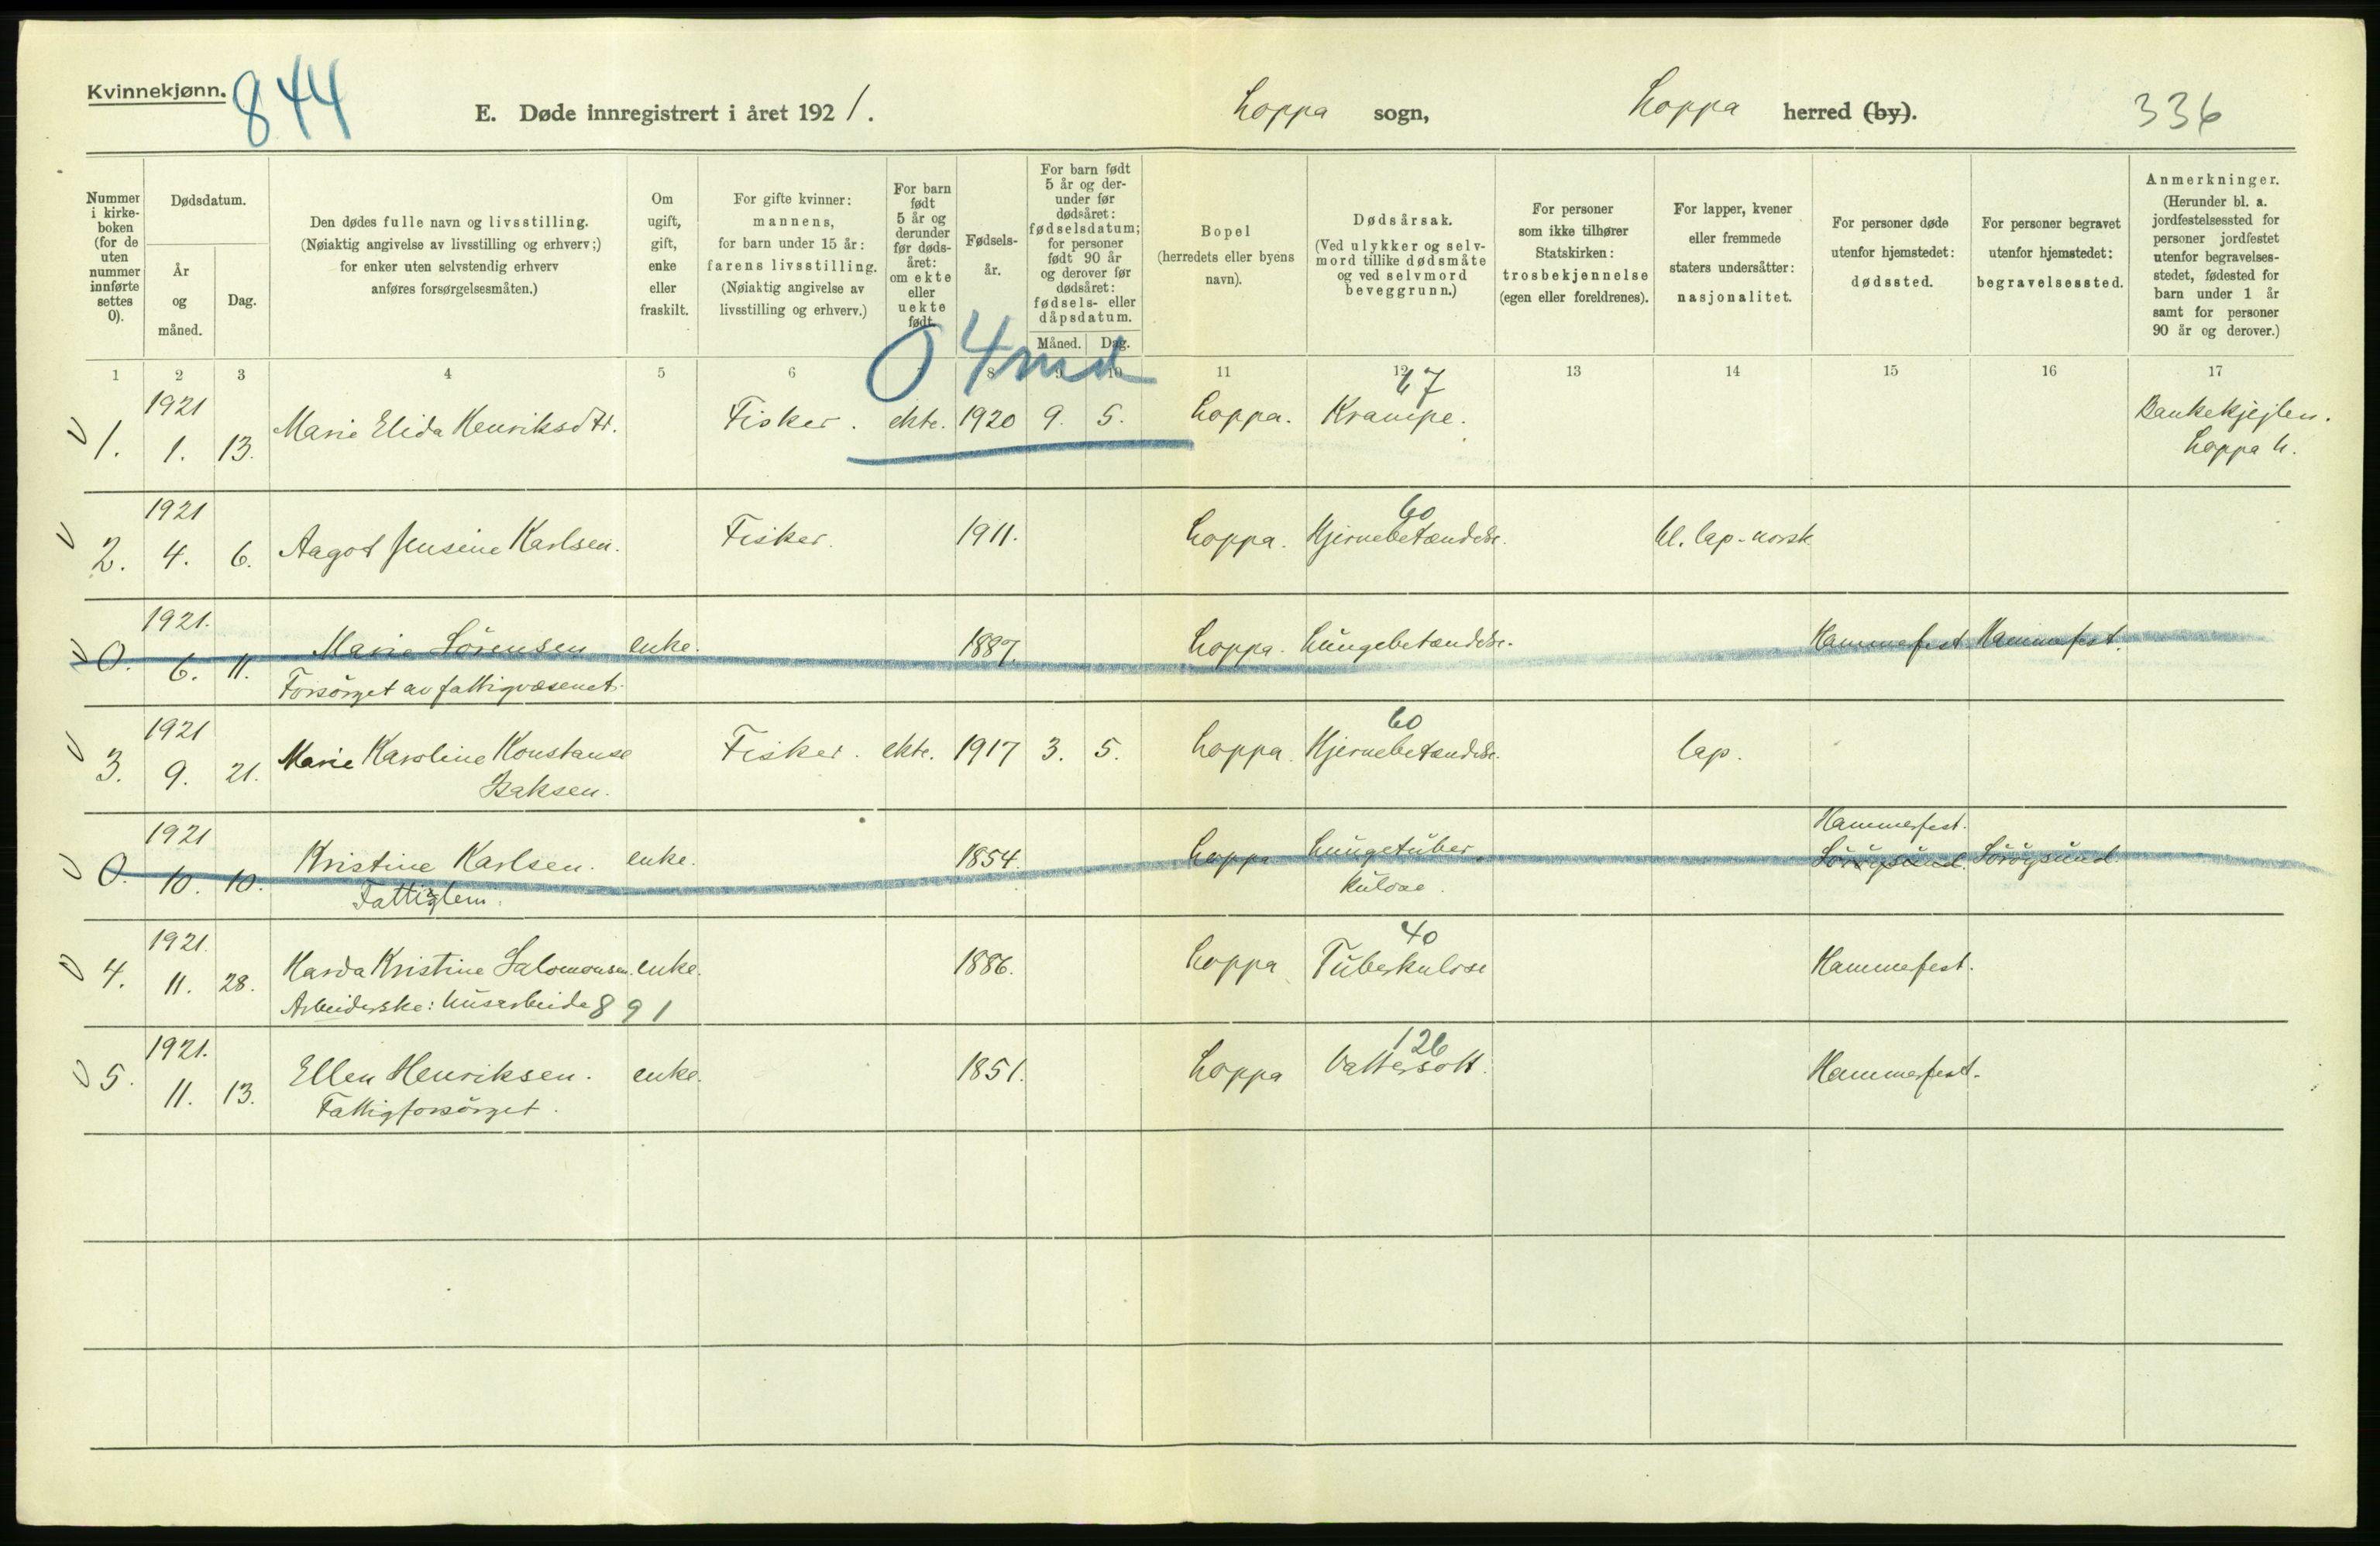 Kvinnekjønn.
844
E. Døde innregistrert i året 1921.
Loppa sogn,
Loppa herred (by).
336
Nummer i kirke-boken (for de uten nummer innførte settes 0).
Dødsdatum.
År og måned.
Dag.
Den dødes fulle navn og livsstilling.
(Nøiaktig angivelse av livsstilling og erhverv;)
for enker uten selvstendig erhverv
anføres forsørgelsesmåten.)
Om ugift, gift, enke eller fraskilt.
For gifte kvinner:
mannens,
for barn under 15 år:
farens livsstilling.
(Nøiaktig angivelse av
livsstilling og erhverv.)
For barn født 5 år og derunder før døds-året: om ekte eller uekte født.
Fødsels-år.
For barn født 5 år og der-under før dødsåret: fødselsdatum; for personer født 90 år og derover før dødsåret: fødsels- eller dåpsdatum.
Måned. Dag.
Bopel
(herredets eller byens
navn).
Dødsårsak.
(Ved ulykker og selv-
mord tillike dødsmåte
og ved selvmord
beveggrunn.)
For personer
som ikke tilhører
Statskirken:
trosbekjennelse
(egen eller foreldrenes).
For lapper, kvener
eller fremmede
staters undersåtter:
nasjonalitet.
For personer døde
utenfor hjemstedet:
dødssted.
For personer begravet
utenfor hjemstedet:
begravelsessted.
Anmerkninger.
(Herunder bl. a.
jordfestelsessted for
personer jordfestet
utenfor begravelses-
stedet, fødested for
barn under 1 år
samt for personer
90 år og derover.)
1 2 3 4 5 6 8 9 10 11 12 13 14 15 16 17
0 4 md
1921 67
1. 1. 13. Marie Elida Henriksdtr. Fisker. ekte. 1920 9. 5. Loppa. Krampe.
Loppa h.
1921 60
2. 4. 6. Aagot Jensine Karlsen. Fisker. 1911. Loppa. Hjernebetændelse. bl. lap-norsk
1921.
0. 6. 11. Marie Sörensen enke. 1887. Loppa. Lungebetændelse. Hammefest Hammefest.
Forsörget av fattigvæsenet.
1921 60
3. 9. 21. Marie Karoline Konstanse Fisker. ekte. 1917 3. 5. Loppa. Hjernebetændelse. lap.
Isaksen.
1921 Hammerfest.
0. 10. 10. Kristine Karlsen. enke. 1854. Loppa Lungetuber- Söröysund. Söröysund
Fattiglem. kulose.
1921. 40
4. 11. 28. Harda Kristine Salomonsen. enke. 1886. Loppa Tuberkulose Hammefest.
Arbeiderske: husarbeide 891
1921. 126
5. 11. 13. Ellen Henriksen. enke. 1851. Loppa Vattersott. Hammerfest.
Fattigforsörget.